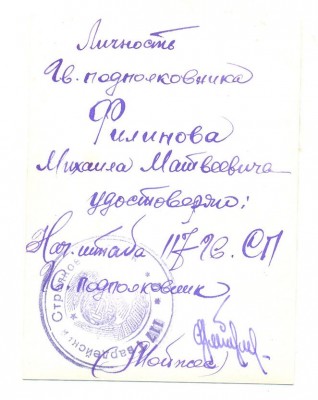 Личность
Гв. подполковника
Филинова
Михаила Матвеевича
удостоверяю:
Нач. штаба 117 Гв. СП
Гв. подполковник